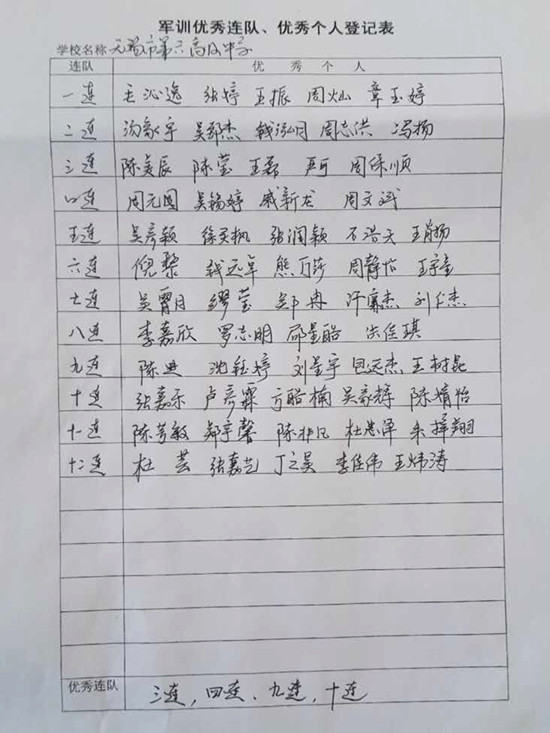 军训优秀连队、优秀个人登记表
学校名称 无锡市第六高级中学
连队 优秀个人
一连 王沁逸 张婷 王振 周灿 章玉婷
二连 吴郅杰 钱泓月 周志洪 冯扬
三连 陈美辰 陈莹 王磊 严可 周保顺
四连 周元园 吴锡婷 戚新龙 周文斌
五连 吴彦颖 徐天枫 张润颖 石浩天 王肖扬
六连 倪黎 钱远卓 熊万莎 周静怡 王宇童
七连 吴霄月 缪莹 邹冉 许廉杰 刘仁杰
八连 李嘉欣 罗志明 邵星皓 宋佳琪
九连 陈进 沈钰婷 刘星宇 包远杰 王树昆
十连 张嘉乐 卢彦霖 方皓楠 吴家辉 陈婧怡
十一连 陈芳敏 郑宇馨 陈非凡 杜忠泽 朱择翔
十二连 杜芸 张嘉艺 丁之昊 李佳伟 王炜涛
优秀连队 三连，四连、九连，十连